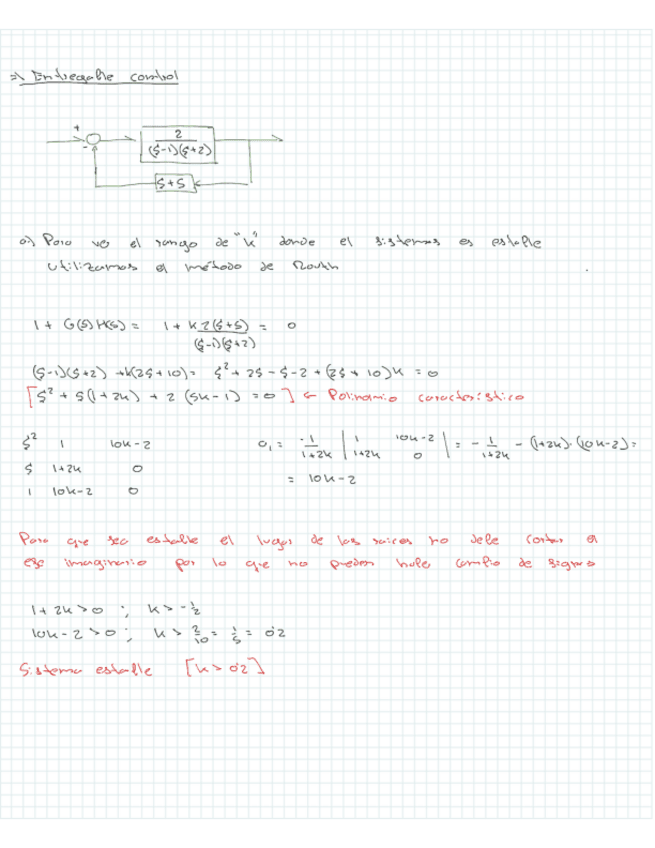 => Entregable control
+
2
-
(s-1)(s+2)
s+5
a) Para ver el rango de "k" donde el sistemas es estable
utilizamos el método de Routh
1 + G(s)H(s) = 1 + k 2(s+5) = 0
(s-1)(s+2)
(s-1)(s+2) + k(2s+10) = s² + 2s - s - 2 + (2s + 10)k = 0
[s² + s(1+2k) + 2(5k-1) = 0] ← Polinomio característico
s² 1 10k-2 a₁ = -1/(1+2k) | 1 10k-2 | = -1/(1+2k) - (1+2k)·(10k-2) =
s 1+2k 0 | 1+2k 0 |
= 10k-2
1 10k-2 0
Para que sea estable el lugar de las raices no debe cortar el
eje imaginario por lo que no pueden haber cambio de signos
1+2k>0 ; k > -1/2
10k-2>0 ; k > 2/10 = 1/5 = 0'2
Sistema estable [k > 0'2]